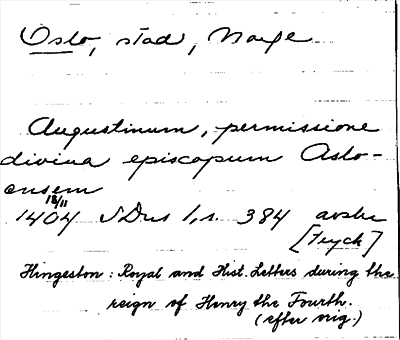 Oslo, stad, Norge
Augustinum, permissione
divina episcopum Aslo-
ensem
18/11
1404 SDns 1, s. 384 avskr
[Tryck]
Hingeston: Royal and Hist. Letters during the
reign of Henry the Fourth.
(efter orig.)